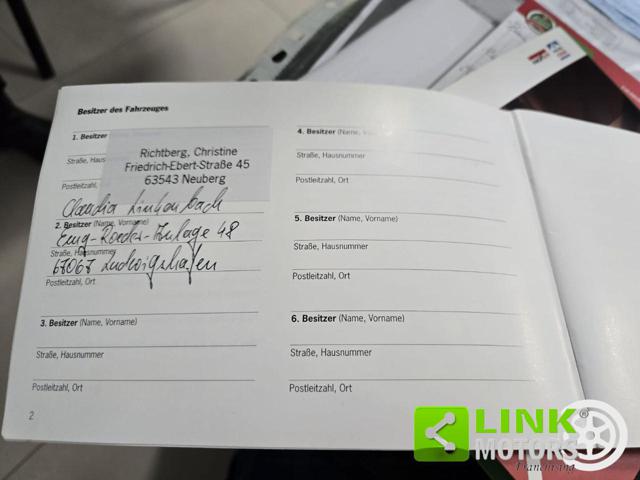 Besitzer des Fahrzeuges
1. Besitzer
Richtberg, Christine
Straße, Haus
Friedrich-Ebert-Straße 45
Postleitzahl,
63543 Neuberg
Claudia
2. Besitzer (Name, Vorname)
48
Straße, Hausnummer
67067 Ludwigshafen
Postleitzahl, Ort
3. Besitzer (Name, Vorname)
Straße, Hausnummer
Postleitzahl, Ort
2
4. Besitzer (Name, Vorname)
Straße, Hausnummer
Postleitzahl, Ort
5. Besitzer (Name, Vorname)
Straße, Hausnummer
Postleitzahl, Ort
6. Besitzer (Name, Vorname)
Straße, Hausnummer
Postleitzahl, Ort
LINK®
MOTORS
Franchising